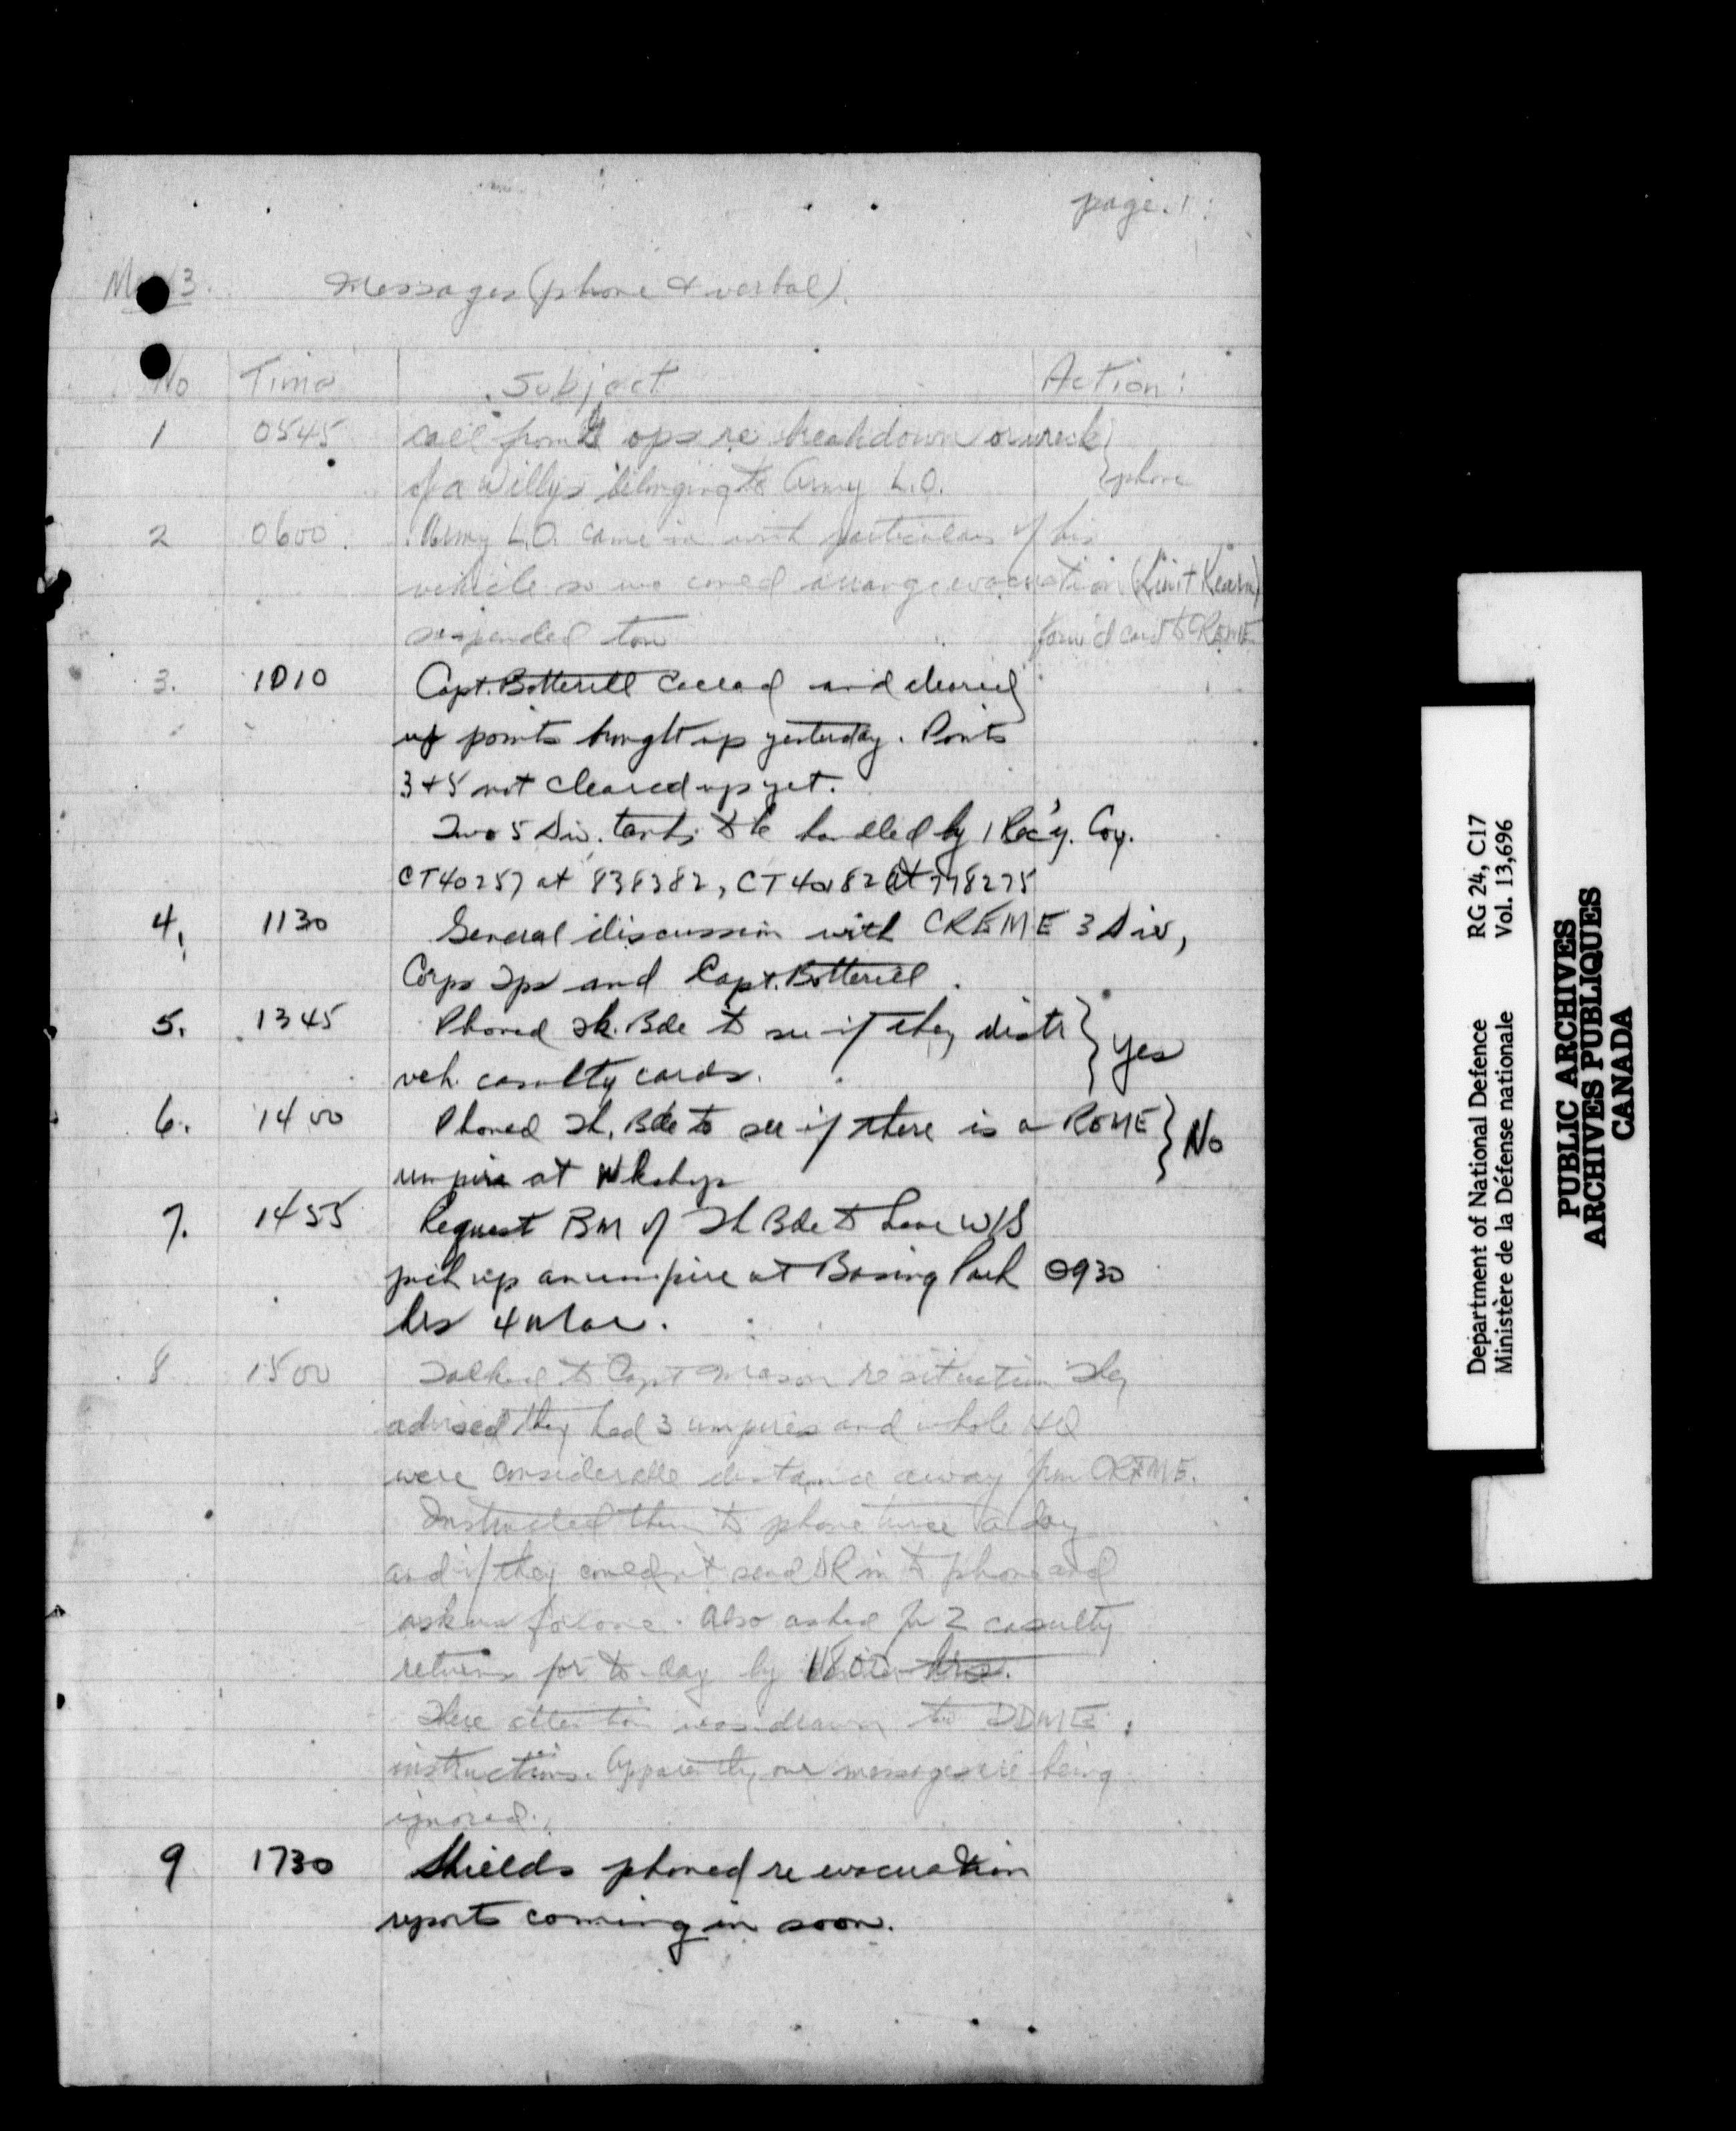 page. 1.
3. Messages (phone & verbal).
No Time Subject Action:
1 0545 call from G ops re breakdown or wreck } phone
of a Willys belonging to Army L.O.
2 0600. Army L.O. came in with particulars of his
vehicle so we could arrange evacuation
suspended tow for'd card to CREME
3. 1010 Capt. Botterill called and cleared
up points brought up yesterday. Points
3 + 5 not cleared up yet.
Two 5 Div. tanks to be handled by 1 Rec'y. Coy.
CT40257 at 838382, at 778275
4. 1130 General discussion with CREME 3 Div,
Corps Tps and Capt. Botterill.
5. 1345 Phoned Tk. Bde to see if they distr } yes
veh. casulty cards.
6. 1400 Phoned Tk. Bde to see if there is a REME } No
umpire at Wkshps
7. 1455 Request BM of Tk Bde to have W/S
pick up an umpire at Basing Park 0930
hrs 4 Mar.
8 1500 Talked to Capt Mason re situation They
advised they had 3 umpires and whole HQ
were considerable distance away from CREME.
Instructed them to phone twice a day
and if they couldn't send DR in to phone and
ask us for one. Also asked for 2 casulty
returns for to-day by 1800 hrs.
There attention was drawn to DDME
instructions. Apparently our messages are being
ignored.
9 1730 Shields phoned re evacuation
reports coming in soon.
Department of National Defence RG 24, C17
Ministère de la Défense nationale Vol. 13,696
PUBLIC ARCHIVES
ARCHIVES PUBLIQUES
CANADA